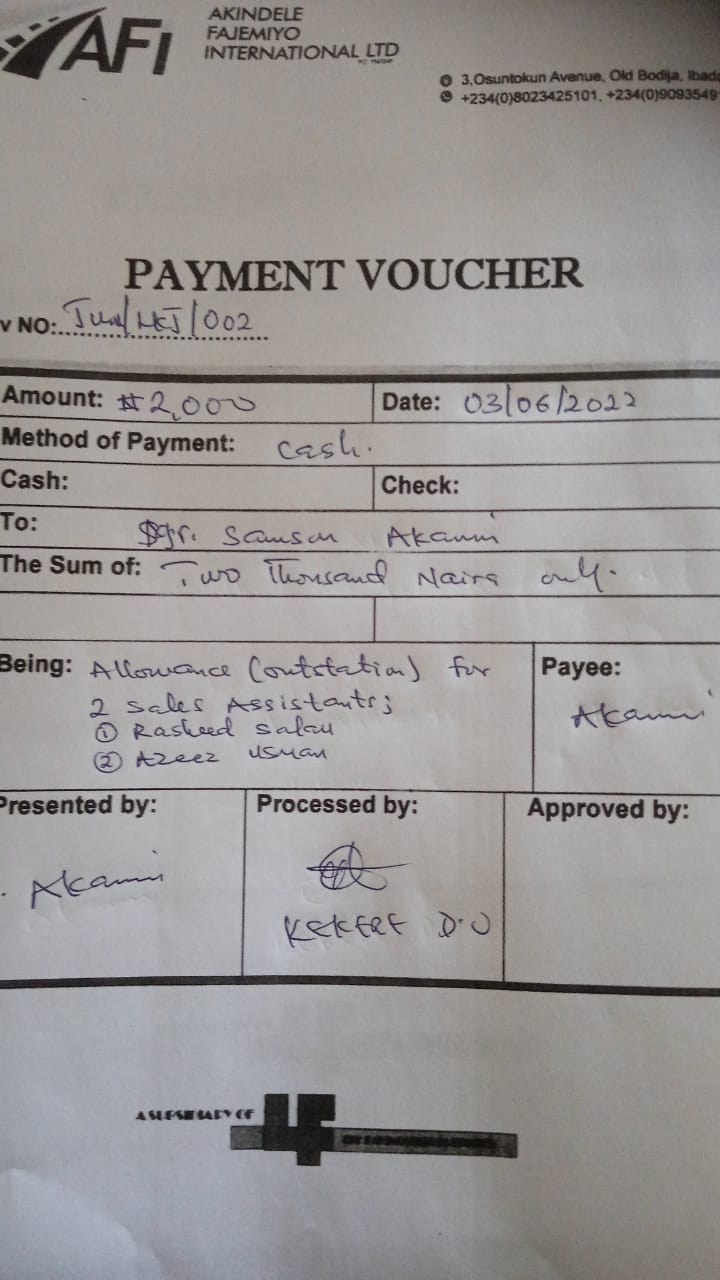 AFI
AKINDELE
FAJEMIYO
INTERNATIONAL LTD
3,Osuntokun Avenue, Old Bodija, Ibada
+234(0)8023425101, +234(0)9093549
PAYMENT VOUCHER
v NO: Jun/ /002
Amount: ₦2,000 Date: 03/06/2022
Method of Payment: cash.
Cash: Check:
To: Samson Akanni
The Sum of: Two Thousand Naira only.
Being: Allowance (outstation) for
2 Sales Assistants;
① Rasheed Salau
② Azeez Usman
Payee:
Akanni
Presented by: Processed by: Approved by:
Akanni
KEKERE D.O
A SUBSIDIARY OF